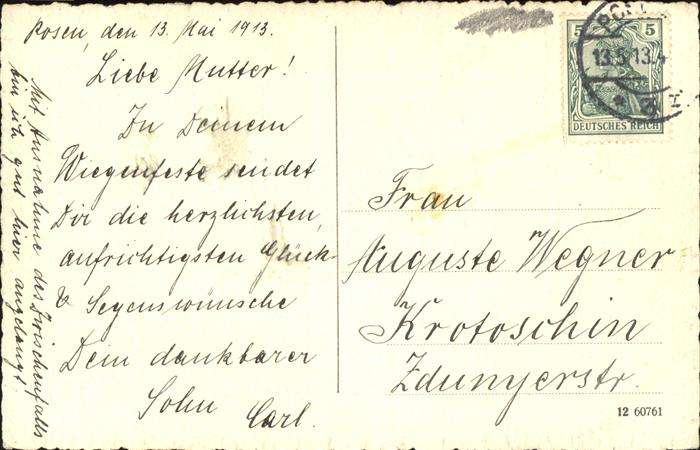 Posen, den 13. Mai 1913.
Liebe Mutter!
Zu Deinem
Wiegenfeste sendet
Dir die herzlichsten,
aufrichtigsten Glück-
& Segenswünsche
Dein dankbarer
Sohn Carl.
Mit Ausnahme des Zwischenfalls
bin ich gut hier angelangt!
5 5
DEUTSCHES REICH
13.5.13.4
Frau
Auguste Wegner
Krotoschin
Zdunyerstr.
12 60761